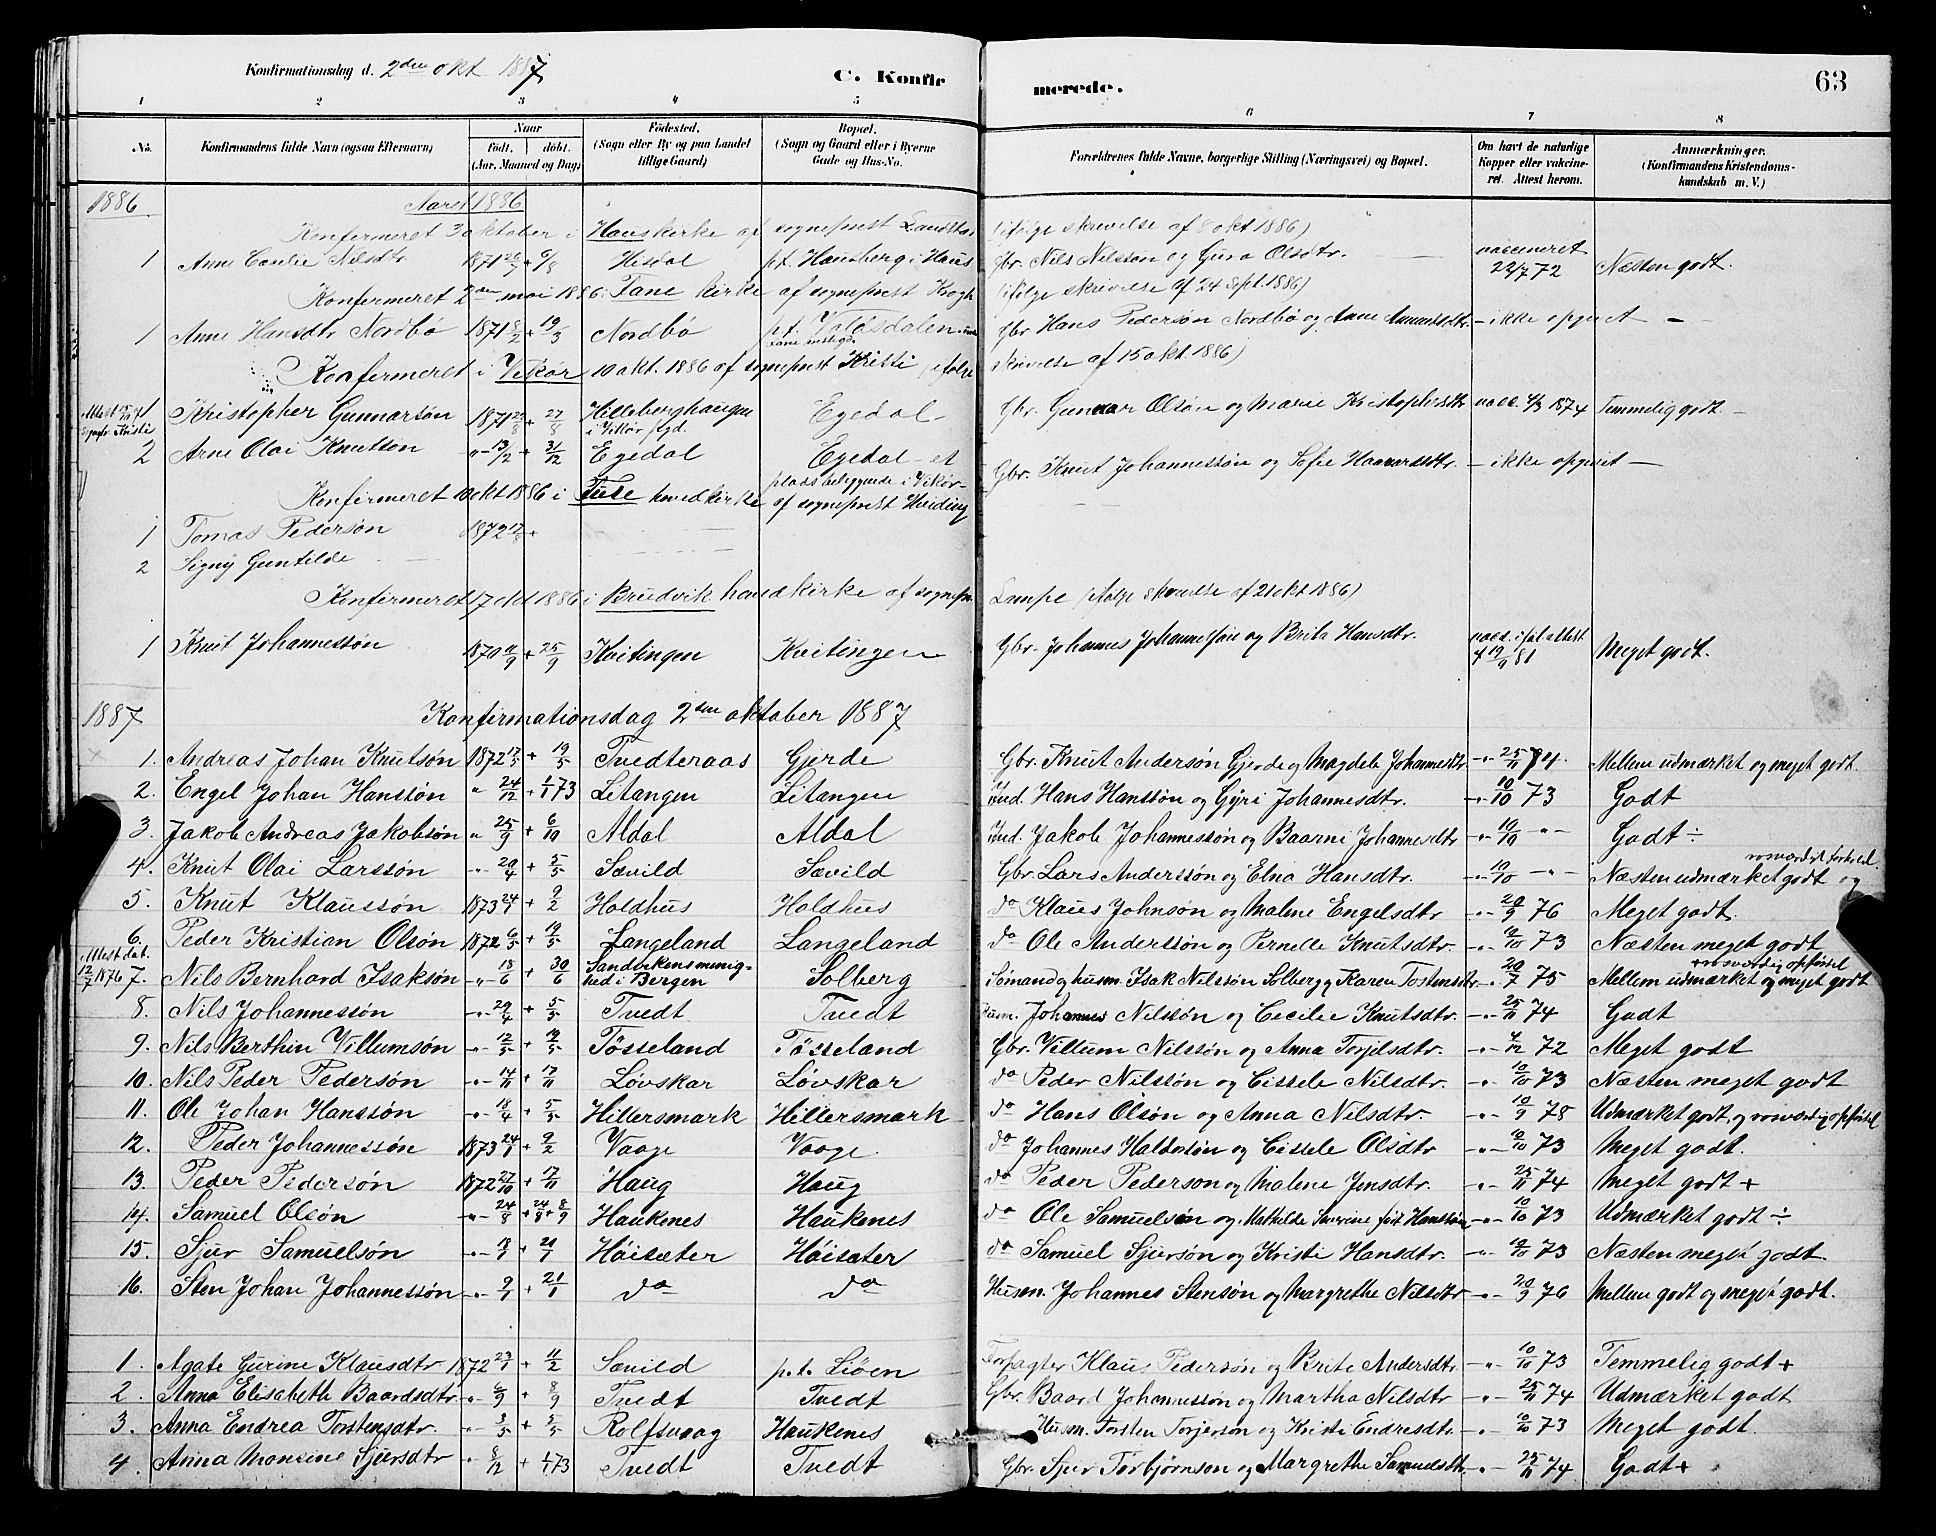 Konfirmationsdag d. 2den okt 1887
C. Konfir merede. 63
1 2 3 4 5 6 7 8
No.
Konfirmandens fulde Navn (ogsaa Efternavn)
Naar
födt. döbt.
(Aar, Maaned og Dag)
Födested.
(Sogn eller By og paa Landet
tillige Gaard)
Bopæl.
(Sogn og Gaard eller i Byerne
Gade og Hus-No.
Forældrenes fulde Navne, borgerlige Stilling (Næringsvei) og Bopæl.
Om havt de naturlige
Kopper eller vakcine-
ret. Attest herom.
Anmærkninger.
(Konfirmandens Kristendoms-
kundskab m. V.)
1886 Aaret 1886
Konfirmeret 3 oktober i Hauskirke af sogneprest (ifølge skrivelse af 8 okt 1886)
1 Anne Cecilie Nilsdtr 1871 Hisdal pt. Hausberg i Haus Gbr. Nils Nilssøn og Guro Olsdtr. 72 Næsten godt.
Konfirmeret 2den mai 1886 i Fane kirke af sogneprest Krogh (ifølge skrivelse af 24 sept. 1886)
1 Anne Hansdtr Nordbø 1871 8/2 + 19/3 Nordbø pt. Gbr Hans Pedersøn Nordbø og Anne - ikke opgivet -
Konfirmeret i Vikør 10 okt. 1886 af sogneprest Kristi ifølge skrivelse af 15 okt. 1886)
1 Kristopher Gunnarsøn 1871 + 27/8 i Vikør Egedal Gbr. Gunnar Olsøn og Marie Kristophersdtr vacc. 4/3 1874 Temmelig godt -
2 Arne Olai Knutsøn 13/12 + 31/12 Egedal Egedal et plads beliggende i Vikør Gbr. Knut Johannessøn og Sofie - ikke opgivet -
Konfirmeret 10 okt 1886 i Fuse hovedkirke af sogneprest
1 Tomas Pedersøn 1872 +
2 Signy Guntilde
Konfirmeret 17 okt 1886 i Brudvik hovedkirke af sognepr. Lampe (ifølge skrivelse af 21 okt 1886)
1 Knut Johannessøn 1870 11/9 + 25/9 Kvitingen Kvitingen Gbr. Johannes Johannessøn og Brita Hansdtr. vacc. iføl attest af 19/9 81 Meget godt.
1887 Konfirmationsdag 2den oktober 1887
1. Andreas Johan Knutsøn 1872 17/5 + 19/5 Tvedteraas Gjerde Gbr. Knut Andersøn Gjerde og Magdele Johannesdtr -"- 25/11 74. Mellem udmærket og meget godt.
2. Engel Johan Hanssøn " 24/12 + 1/1 73 Litangen Litangen Ind. Hans Hanssøn og Gyri Johannesdtr. -"- 10/10 73 Godt
3. Jakob Andreas Jakobsøn " 25/9 + 6/10 Aldal Aldal Ind. Jakob Johannessøn og Baarni Johannesdtr -"- 10/10 -"- Godt ÷
4. Knut Olai Larssøn -"- 20/4 + 5/5 Sævild Sævild Gbr. Lars Anderssøn og Elna Hansdtr. -"- 10/10 -"- Næsten udmærket godt og rosværdigt forhold.
5. Knut Klaussøn 1873 24/1 + 9/2 Holdhus Holdhus do Klaus Johnsøn og Malene Engelsdtr -"- 20/9 76 Meget godt.
6. Peder Kristian Olsøn 1872 6/5 + 12/5 Langeland Langeland do Ole Anderssøn og Pernelle Knutsdtr. -"- 10/10 73 Næsten meget godt
Attest dat. 12/7 1876 7. Nils Bernhard Isaksøn -"- 18/6 + 30/6 Sandvikens menighed i Bergen Solberg Sømand og husm. Isak Nilssøn Solberg og Karen Tostensdtr -"- 20/7 75 Mellem udmærket og meget godt + rosværdig opførsel
8. Nils Johannessøn -"- 29/4 + 5/5 Tvedt Tvedt Husm. Johannes Nilssøn og Cecilie Knutsdtr. -"- 25/11 74 Godt
9. Nils Berthin Villumsøn -"- 12/5 + 19/5 Tøsseland Tøsseland Gbr. Villum Nilssøn og Anna Torjilsdtr. -"- 4/12 72 Meget godt
10. Nils Peder Pedersøn -"- 14/11 + 17/11 Løvskar Løvskar do Peder Nilssøn og Cissele Nilsdtr. -"- 10/10 73 Næsten meget godt
11. Ole Johan Hanssøn -"- 18/4 + 5/5 Hillersmark Hillersmark do Hans Olsøn og Anna Nilsdtr. -"- 10/9 78 Udmærket godt, og rosværdig opførsel
12. Peder Johannessøn 1873 24/1 + 9/2 Vaage Vaage do Johannes Haldorsøn og Cissele Olsdtr -"- 10/10 73 Meget godt.
13. Peder Pedersøn 1872 27/10 + 17/11 Haug Haug do Peder Pedersøn og Malene Jensdtr. -"- 25/11 74 Meget godt +
14. Samuel Olsøn -"- 24/8 + 24/8 + 8/9 Haukenes Haukenes do Ole Samuelsøn og Mathilde Severine født Hanssøn -"- 10/10 73 Udmærket godt ÷
15. Sjur Samuelsøn -"- 18/1 + 21/1 Høisæter Høisæter do Samuel Sjursøn og Kristi Hansdtr. -"- 10/10 73 Næsten meget godt
16. Sten Johan Johannessøn -"- 9/1 + 21/1 do do Husm. Johannes Stensøn og Margrethe Nilsdtr -"- 20/9 76 Mellem godt og meget godt.
1. Agate Gurine Klausdtr 1872 23/1 + 11/2 Sævild p.t. Siøen Forpagter Klaus Pedersøn og Brite Andersdtr. -"- 10/10 73 Temmelig godt +
2. Anna Elisabeth Baardsdtr. -"- 6/9 + 8/9 Tvedt Tvedt Gbr. Baard Johannessøn og Martha Nilsdtr -"- 25/11 74 Udmærket godt
3. Anna Endrea Torstensdtr. -"- 3/5 + 5/5 Rolfsvaag Haukenes Husm. Torsten Torjersøn og Kristi Endresdtr. -"- 10/10 73 Meget godt.
4. Anna Monsine Sjursdtr " 8/12 + 1/1 73 Tvedt Tvedt Gbr. Sjur Torbjørnson og Margrethe Samuelsdtr. -"- 25/11 74 Godt +